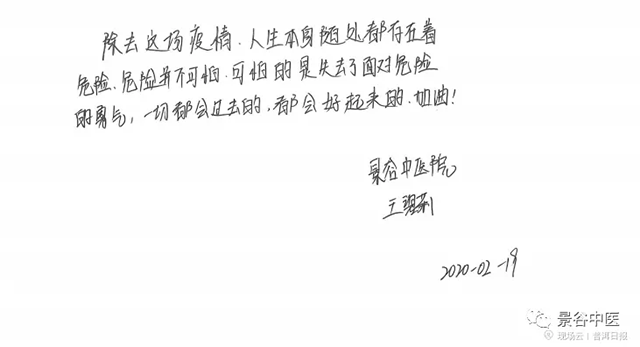 除去这场疫情.人生本身随处都存在着
危险.危险并不可怕.可怕的是失去了面对危险
的勇气,一切都会过去的,都会好起来的.加油!
景谷中医院
2020-02-19
景谷中医
现场云|普洱日报